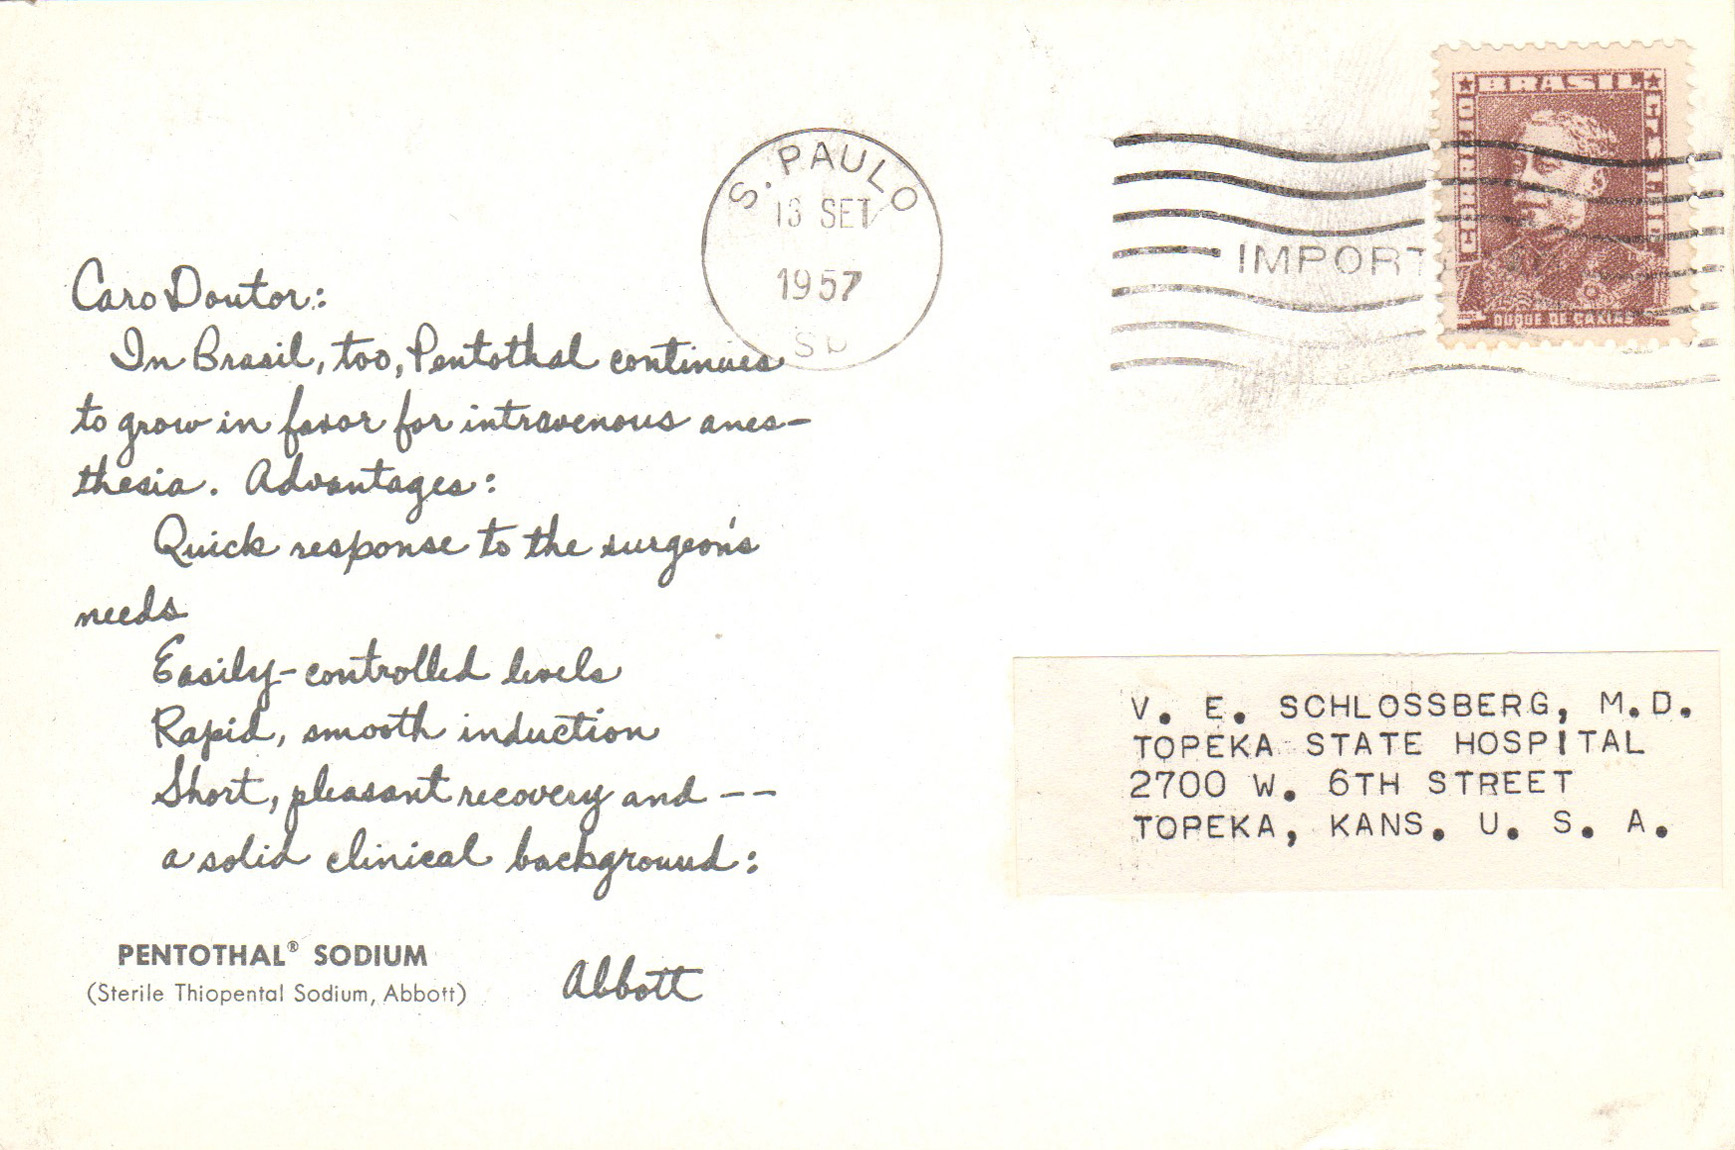 S. PAULO
13 SET
1957
SP
BRASIL
CORREIO
DUQUE DE CAXIAS
Caro Doutor:
In Brasil, too, Pentothal continues
to grow in favor for intravenous anes-
thesia. Advantages:
Quick response to the surgeon's
needs
Easily-controlled levels
Rapid, smooth induction
Short, pleasant recovery and --
a solid clinical background:
PENTOTHAL® SODIUM
(Sterile Thiopental Sodium, Abbott)
Abbott
V. E. SCHLOSSBERG, M.D.
TOPEKA STATE HOSPITAL
2700 W. 6TH STREET
TOPEKA, KANS. U. S. A.